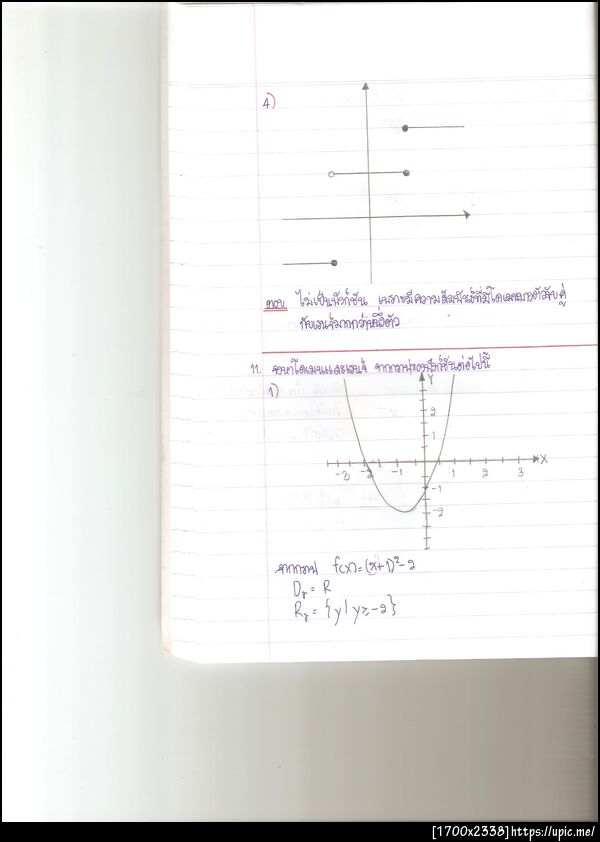 4)
ตอบ ไม่เป็นฟังก์ชัน เพราะมีความสัมพันธ์ที่มีโดเมนบางตัวจับคู่
กับเรนจ์มากกว่าหนึ่งตัว
11. จงหาโดเมนและเรนจ์ จากกราฟของฟังก์ชันต่อไปนี้
1)
Y
2
1
-3 -2 -1 1 2 3 X
-1
-2
จากกราฟ f(x) = (x+1)²-2
Dᵣ = R
Rᵣ = {y | y ≥ -2}
[1700x2338]https://upic.me/